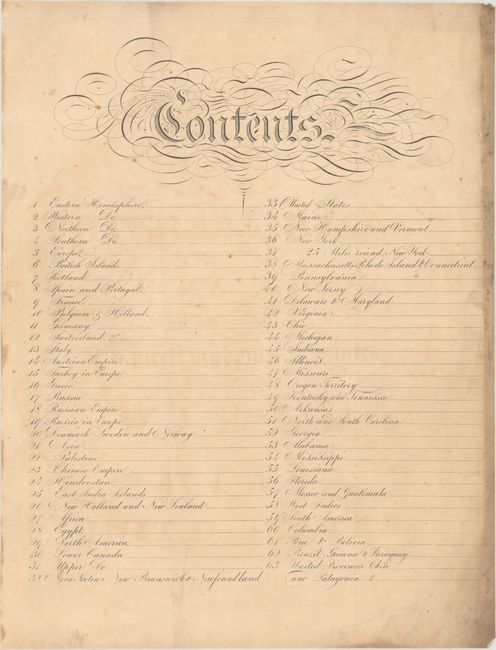 Contents.
1 Eastern Hemisphere.
2 Western Do.
3 Northern Do.
4 Southern Do.
5 Europe.
6 British Islands.
7 Scotland.
8 Spain and Portugal.
9 France.
10 Belgium & Holland.
11 Germany.
12 Switzerland.
13 Italy.
14 Austrian Empire.
15 Turkey in Europe
16 Greece.
17 Prussia
18 Russian Empire
19 Russia in Europe
20 Denmark Sweden and Norway
21 Asia
22 Palestine
23 Chinese Empire
24 Hindoostan
25 East India Islands
26 New Holland and New Zealand
27 Africa
28 Egypt
29 North America
30 Lower Canada
31 Upper Do
32 Nova Scotia New Brunswick & Newfoundland
33 United States
34 Maine
35 New Hampshire and Vermont
36 New York
37 25 Miles round New York
38 Massachusetts Rhode Island & Connecticut
39 Pennsylvania
40 New Jersey
41 Delaware & Maryland
42 Virginia
43 Ohio
44 Michigan
45 Indiana
46 Illinois
47 Missouri
48 Oregon Territory
49 Kentucky and Tennessee
50 Arkansas
51 North and South Carolina
52 Georgia
53 Alabama
54 Mississippi
55 Louisiana
56 Florida
57 Mexico and Guatemala
58 West Indies
59 South America
60 Columbia
61 Peru & Bolivia
62 Brazil Guiana & Paraguay
63 United Provinces Chili
and Patagonia